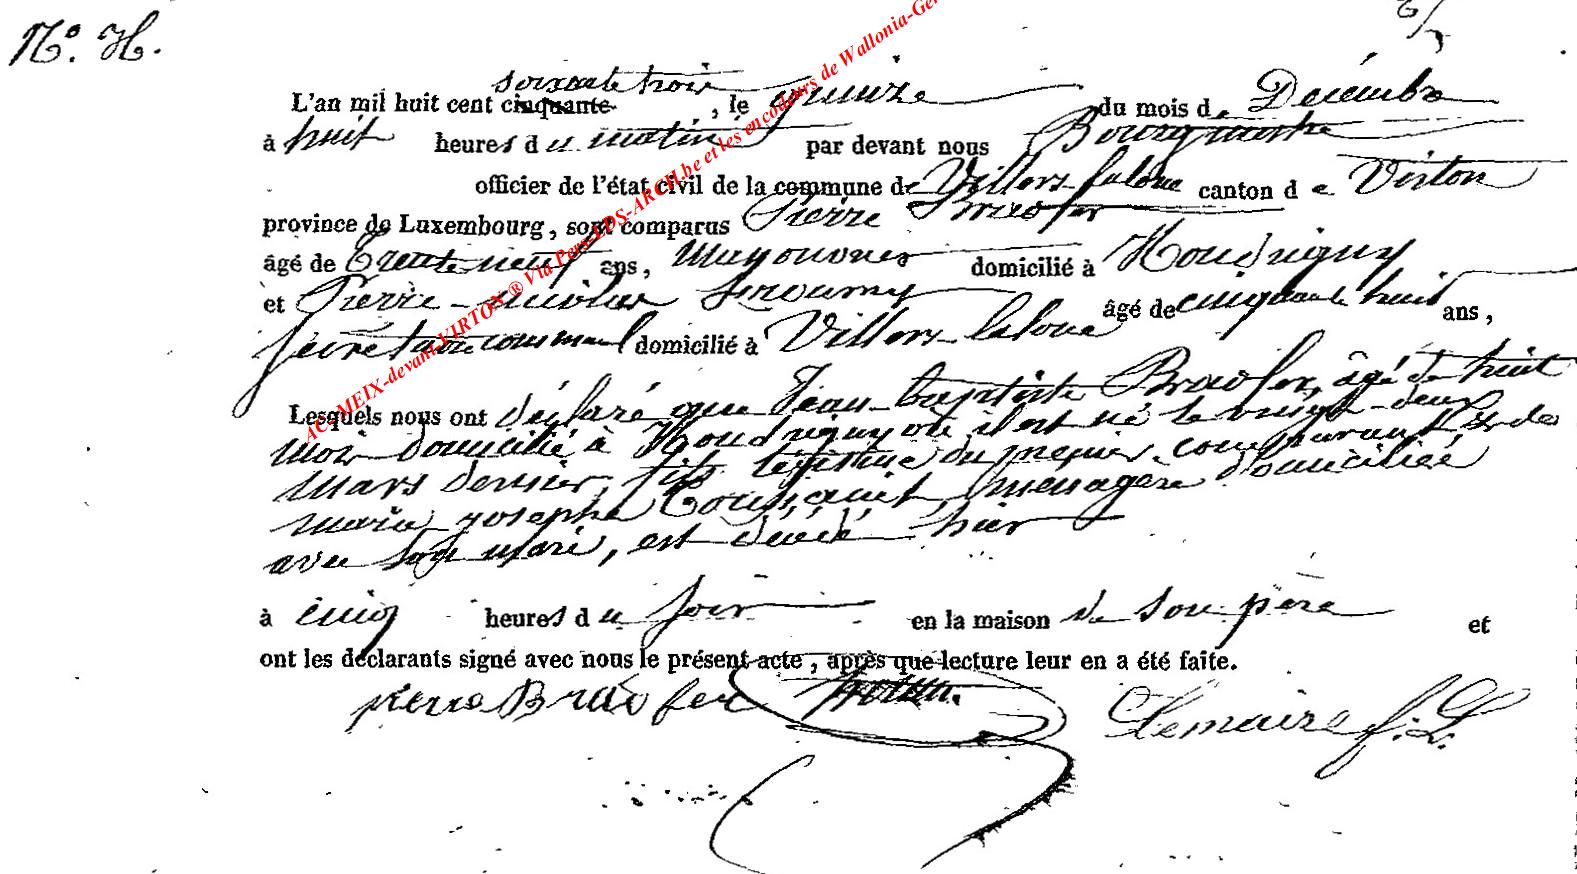 N.° H.
soixante trois
L'an mil huit cent cinquante , le quinze du mois de Décembre
à huit heures du matin par devant nous Bourgmestre
officier de l'état civil de la commune de Villers-laloue canton de Virton
province de Luxembourg, sont comparus Pierre Braofer
âgé de Trente neuf ans, domicilié à Houdrigny
et Pierre-nicolas âgé de cinquante huit ans,
secrétaire communal domicilié à Villers-laloue
Lesquels nous ont déclaré que Jean-baptiste Braofer, âgé de huit
mois domicilié à Houdrigny où il est né le vingt-deux
mars dernier, fils légitime du premier comparant & de
marie josephe Toussaint ménagère domiciliée
avec son mari, est décédé hier
à cinq heures du soir en la maison de son père et
ont les déclarants signé avec nous le présent acte, après que lecture leur en a été faite.
pierre Braofer Lemaire f. L.
AC- MEIX-devant-VIRTON ® Via Pers-EDS-ARCH.be et les encodeurs de Wallonia-Gen